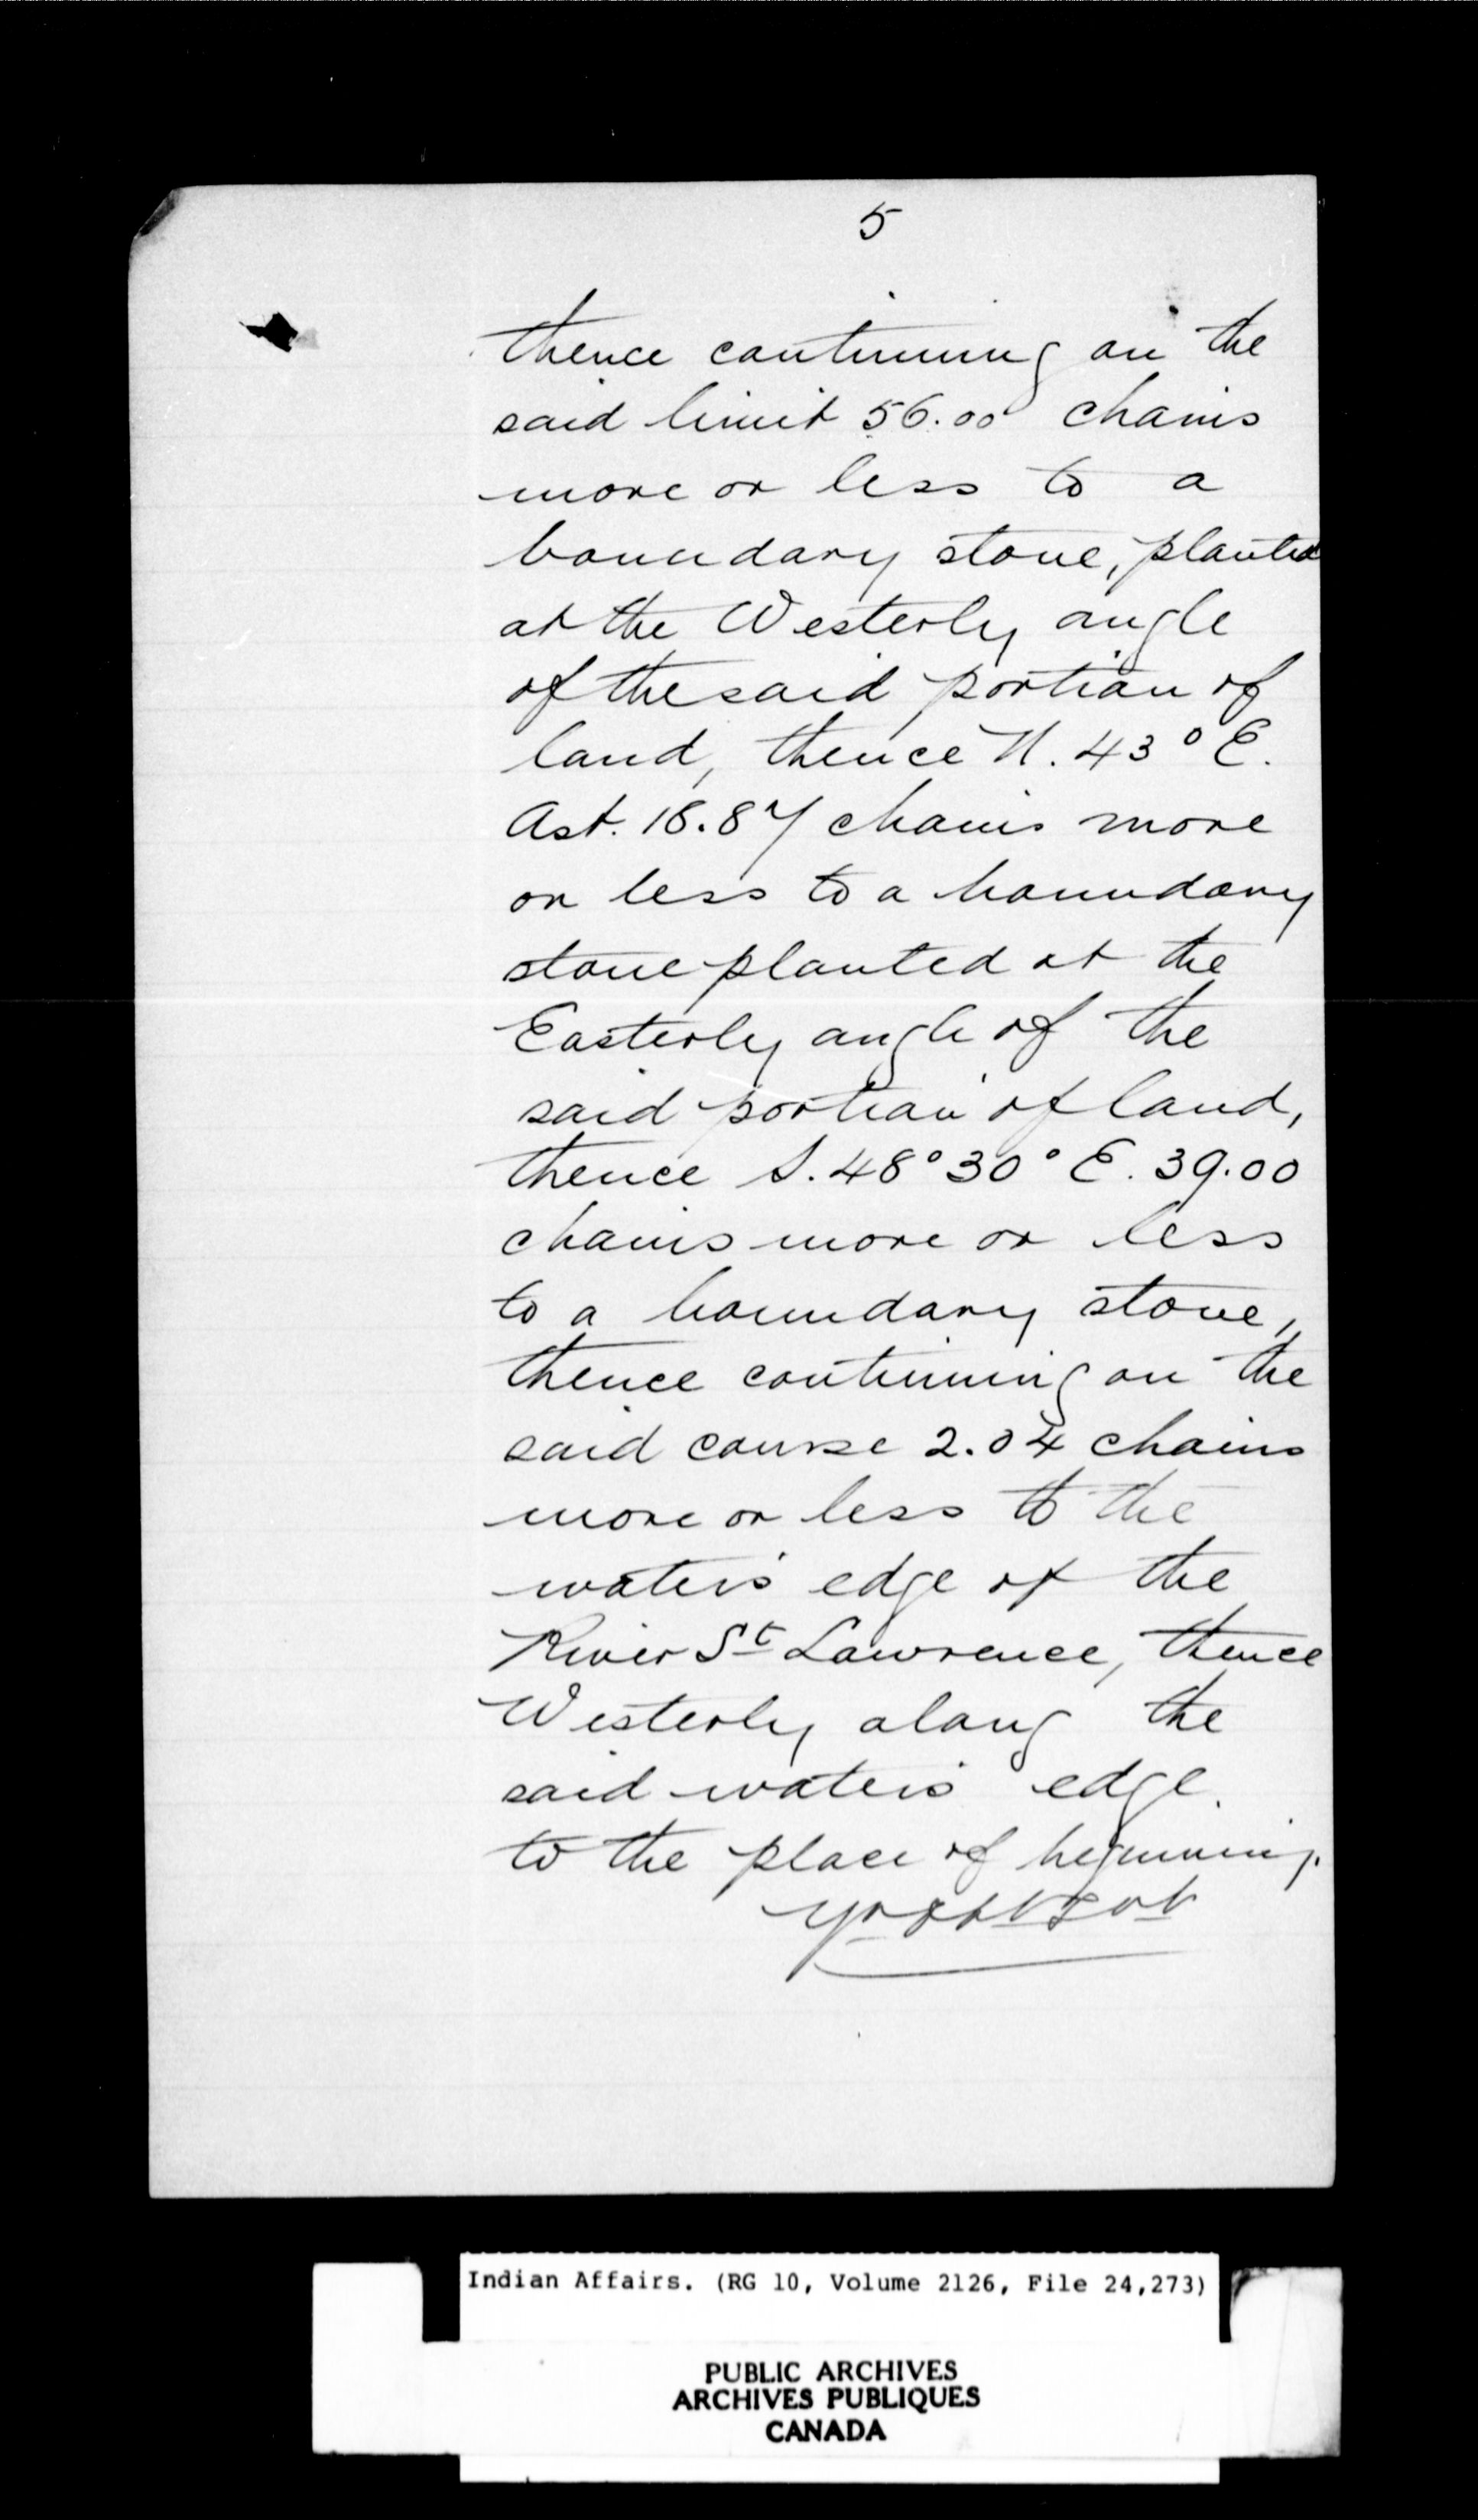 5
thence continuing on the
said limit 56.00 chains
more or less to a
boundary stone, planted
at the Westerly angle
of the said portion of
land, thence N. 43° E.
Ast. 18.87 chains more
or less to a boundary
stone planted at the
Easterly angle of the
said portion of land,
thence S. 48° 30° E. 39.00
chains more or less
to a boundary stone,
thence continuing on the
said course 2.04 chains
more or less to the
water's edge of the
River St Lawrence, thence
Westerly along the
said water's edge.
to the place of beginning.
Indian Affairs. (RG 10, Volume 2126, File 24,273)
PUBLIC ARCHIVES
ARCHIVES PUBLIQUES
CANADA